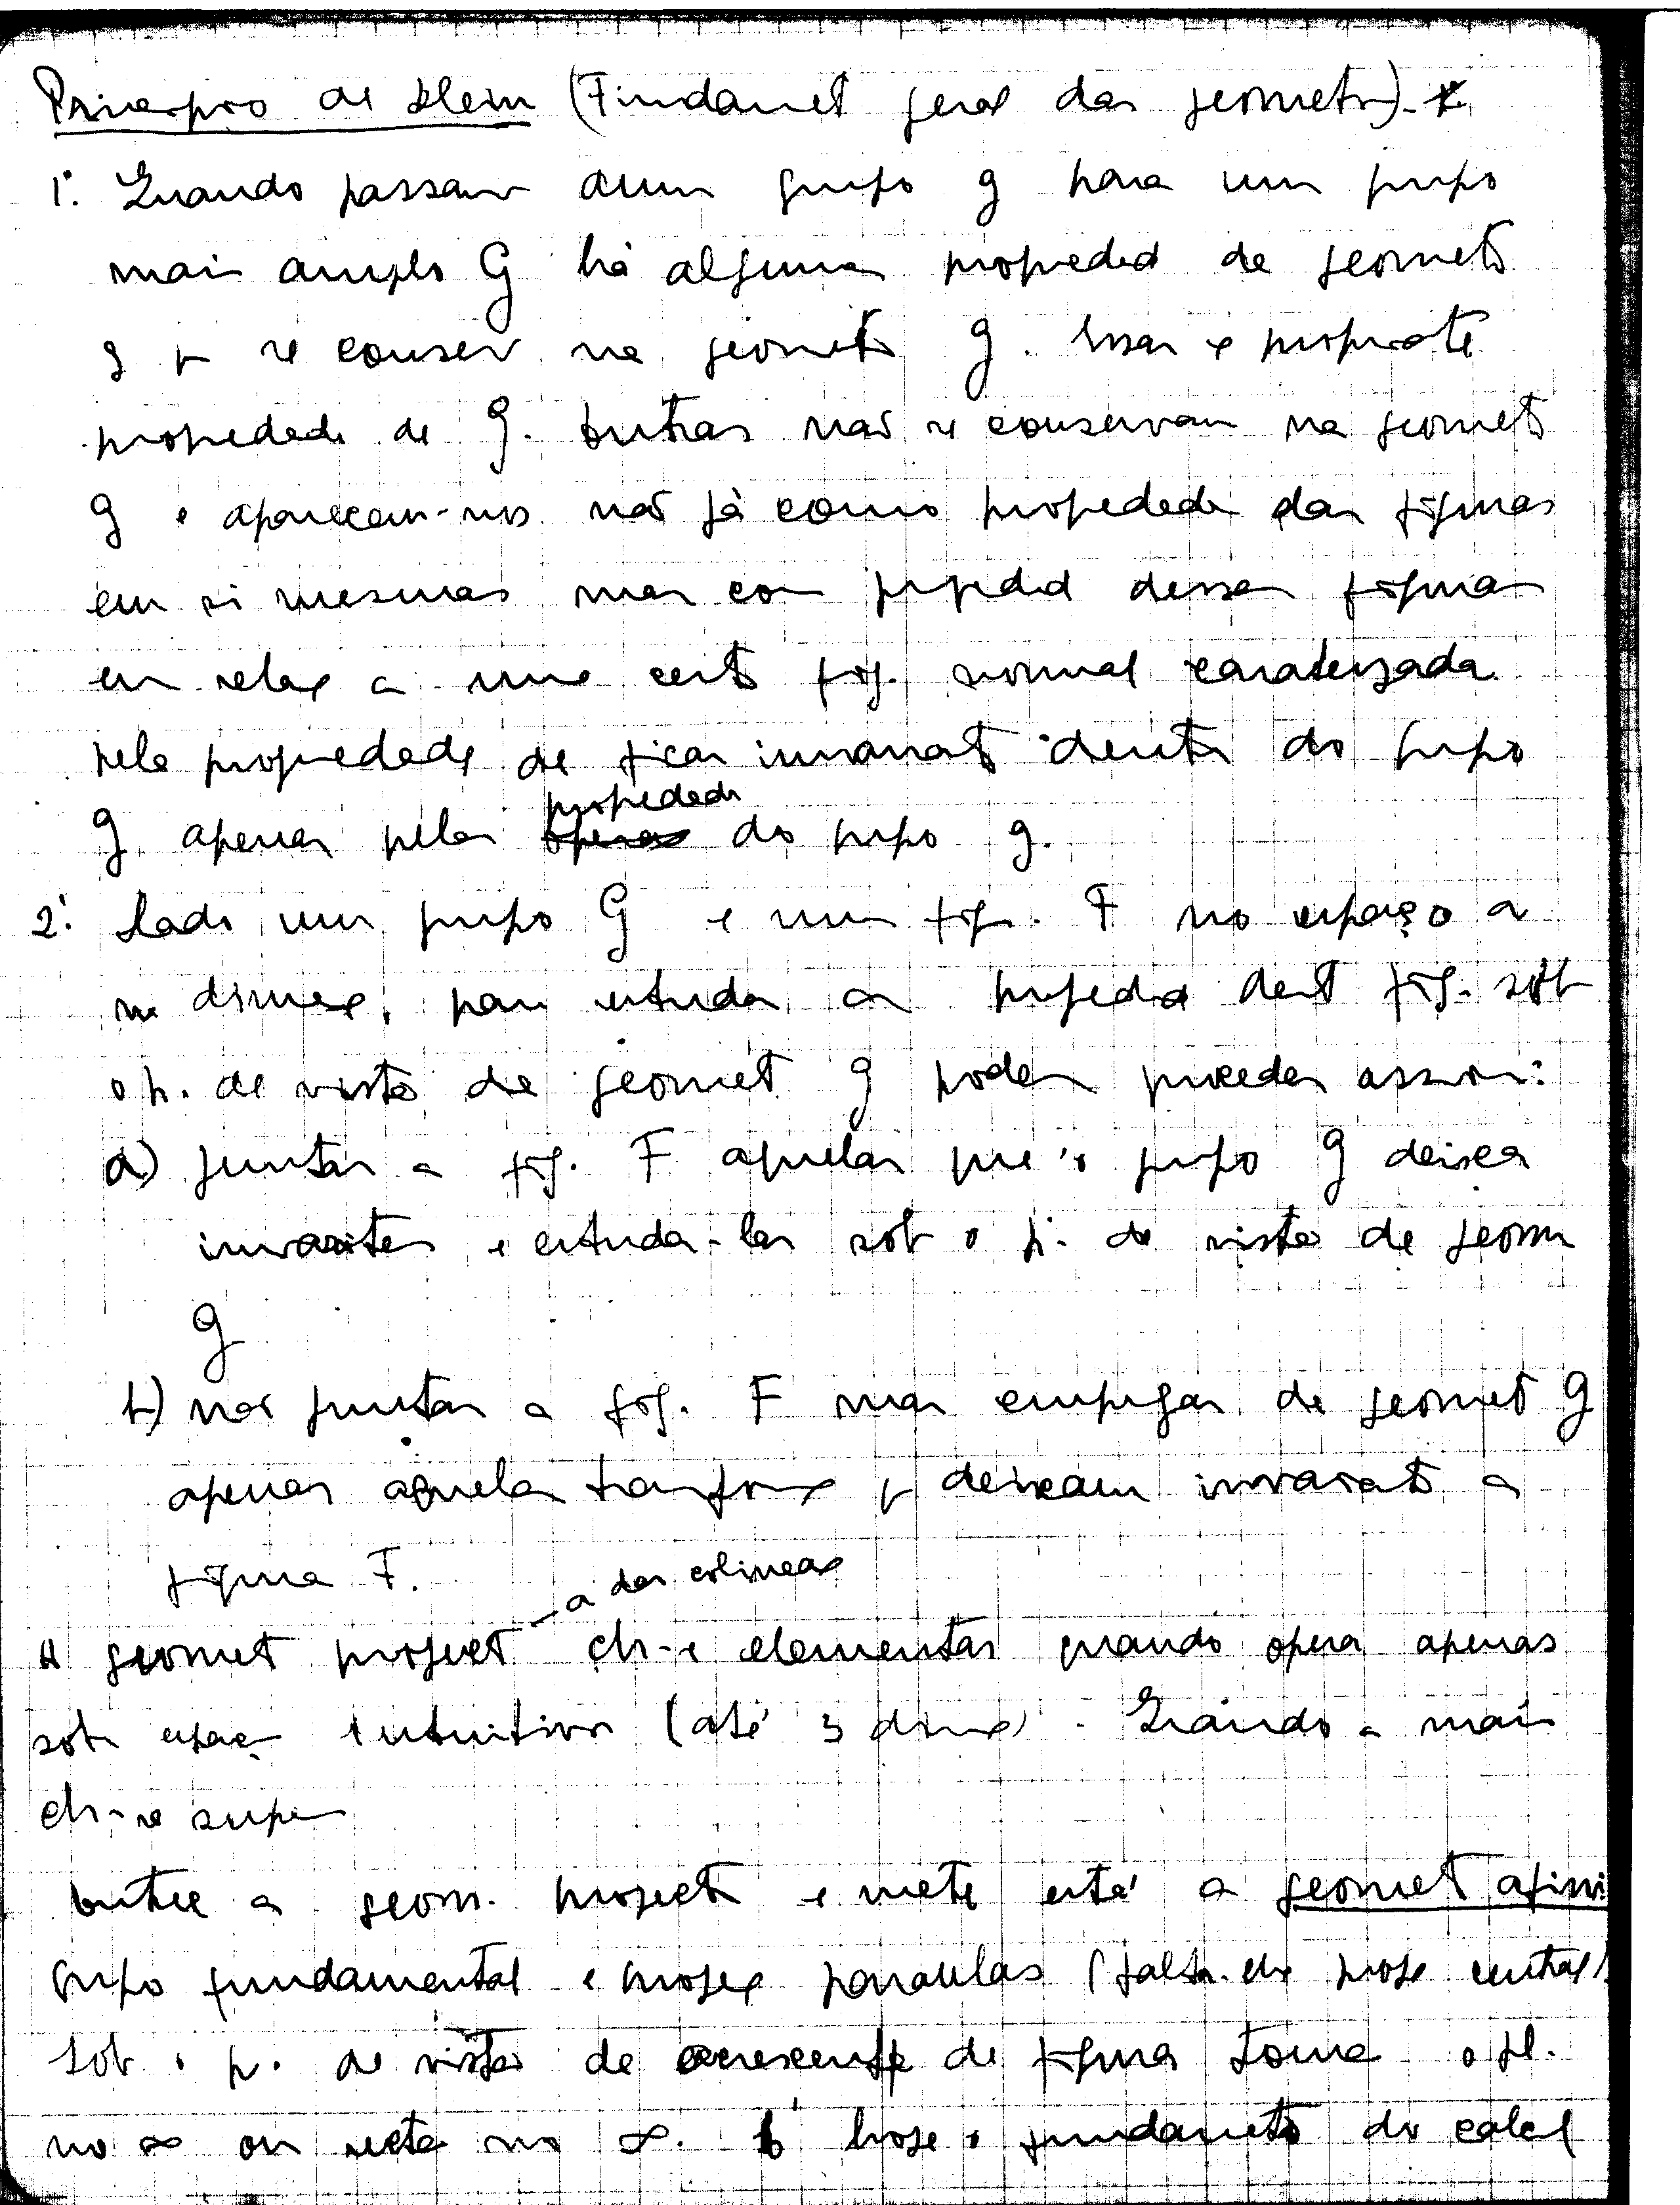 Principio de Klein (Fundamet geral das geometr).-*
1.º Quando passam dum grupo g para um grupo
mais amplo G há algumas propriedad da geomet
g q se conserv. na geomet G. Essas e propriate
propriedade de G. Outras não se conservam na geomet
G e aparecem-nos não já como propriedade das figuras
em si mesmas mas com propiedad dessas figuras
em relaç a uma cert fig. normal caraterizada
pela propriedade de ficar invariant dentr do grupo
G apenas pelas propriedade do grupo g.
2.º Dado um grupo G e uma fig. F no espaço a
n dimens, para estudar as propriedad dest fig. sob
o p. de vista da geomet g podem proceder assim:
a) juntar a fig. F aquelas que o grupo g deixa
invariantes e estuda-las sob o p. de vista da geom
G
b) não juntar a fig. F mas empregar da geomet G
apenas aquelas transform q deixam invariant a
figura F.
- a das colineaç
A geomet project ch-se elementar quando opera apenas
sob espaç intuitivos (até 3 dims). Quando a mais
ch-se super
Entre a geom. project e metr está a geomet afim
Grupo fundamental e projeç paralelas (falta-lhe proj central)
Sob o p. de vista de acrescent de figura toma o pl.
no ∞ ou recta no ∞. É hoje o fundamento do calcul